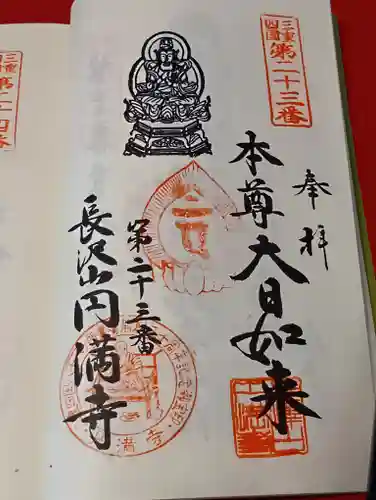 三重
四国
第二十三番
奉拝
本尊大日如来
第二十三番
長沢山円満寺
三重
四国
第二十四番